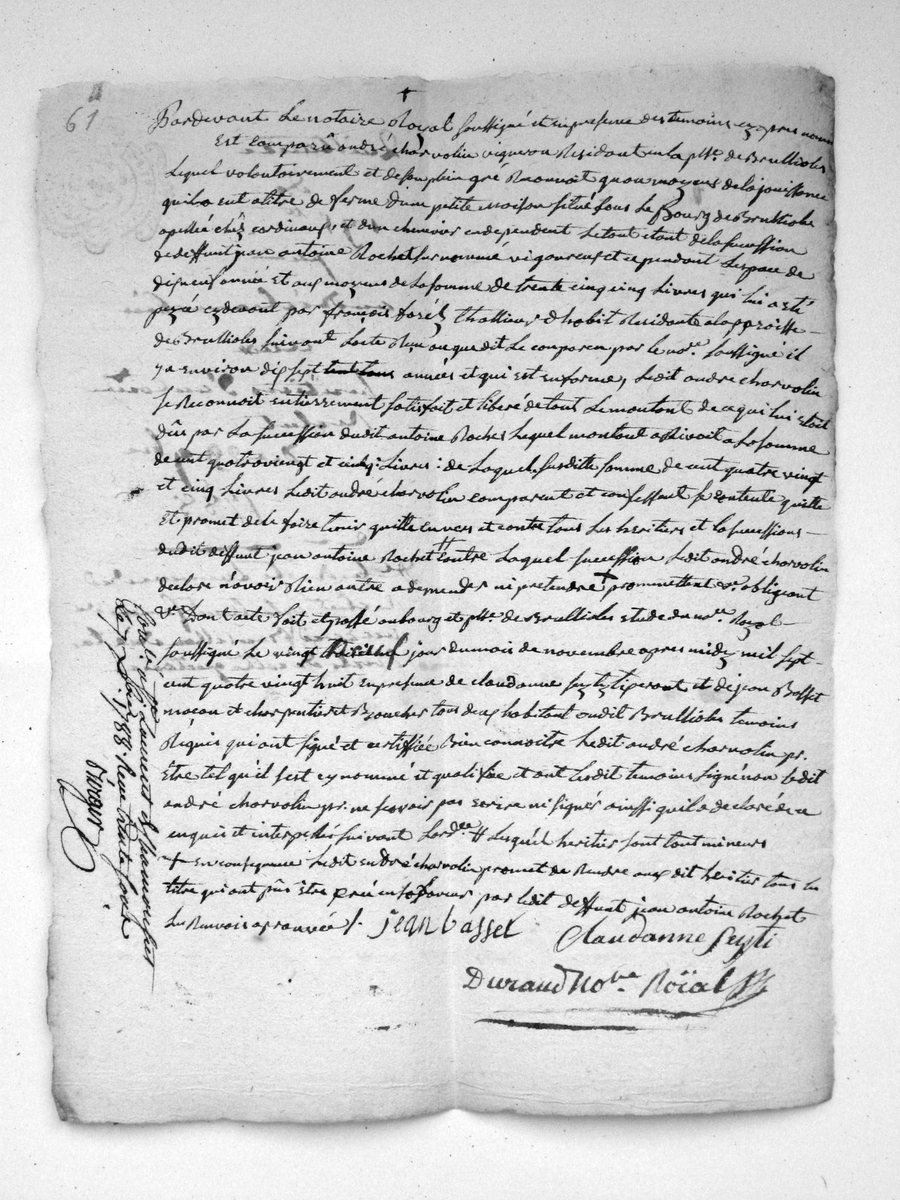 61
Pardevant Le notaire Royal soussigné et en presence des temoins cy apres nommés
Est Comparu andré charvolin vigneron Residant en la psse de Brullioles
Lequel volontairement et de son plein gré Reconnoit qu'au moyens de la jouissance
qu'il a eut a titre de ferme d'une petite maison situé sous Le Bourg de Brulliole
apellée chéz cardinaux, et d'un chenevier en dependent Le tout etant de la sucession
de deffunt jean antoine Rochet surnommé vigoureux et ce pendant L'espace de
dix neuf année Et aux moyens de La somme de trente cinq Livres qui lui a eté
payée cydevant par françois forét thallieur d'habit Residante a la paroisse
de Brullioles suivant L'acte Reçu au que dit Le comparen par le nore. soussigné il
y a environ dix sept années et qui est en forme, Ledit andre charvolin
se Reconnoit entierement satisfait et liberé de tout Le montant de ce qui lui etoit
dûs par La sucession dudit antoine Rochet Lequel montant arrivoit a La somme
de cent quatre vingt et cinq Livres: de Laquel susditte somme de cent quatre vingt
et cinq Livres Ledit andré charvolin comparent et confessant se contente quitte
Et promet de le faire tenir quitte envers et contre tous Les heritiers et La sucessions
dudit deffunt jean antoine Rochet # contre Laquel sucession Ledit andré charvolin
declare n'avoir Rien autre a demender ni pretendre + promettant &. obligeant
&. Dont acte fait et passé au bourg et psse de Brullioles etude du nore. Royal
soussigné Le vingt jour du mois de novembre apres midy mil sept
cent quatre vingt huit en presence de claudanne seyti tiserant et de jean Basset
maçon et charpentier et Boucher tous deux habitant audit Brullioles temoins
Réquis qui ont signé et certiffiée Bien connoitre Ledit andré charvolin pr.
Être tel qu'il s'est cy nommé et qualifiée et ont Lesdit temoins signé non Ledit
andré charvolin pr. ne scavoir pas ecrire ni signér ainssi qu'il a declaré de ce
enquis et interpellé suivant L'ordce # Lesquél heritier sont tout mineurs
+ en consequance Ledit andré charvolin promet de Rendre aux dit heritier tous les
titre qui ont pûs être passé en sa faveur par Ledit deffunt jean antoine Rochet
Les Renvois aprouvée /.
jean basset
Claudanne Seyti
Durand Nore Roïal
1788. Reçu